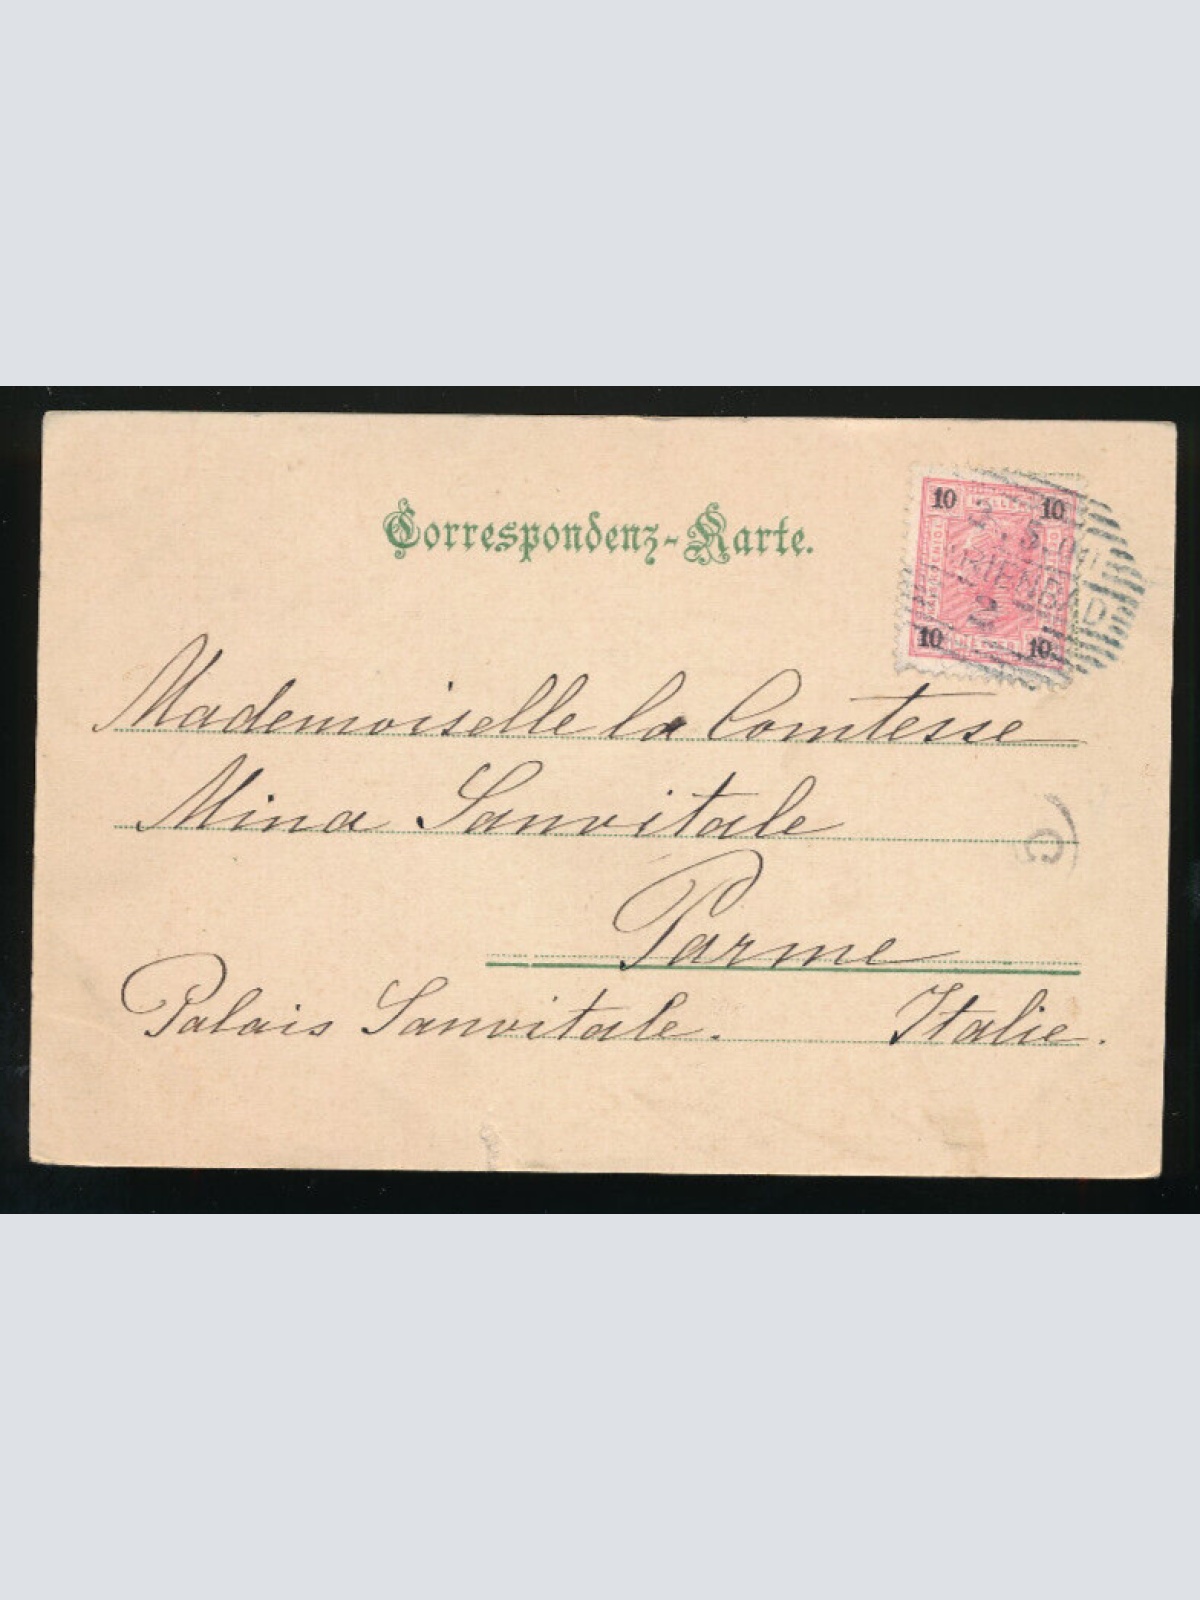 Correspondenz-Karte.
10 HELLER 10
2 5
RIENBAD
2
10 10
Mademoiselle la Comtesse
Mina Sanvitale
C
Parme
Palais Sanvitale. Italie.